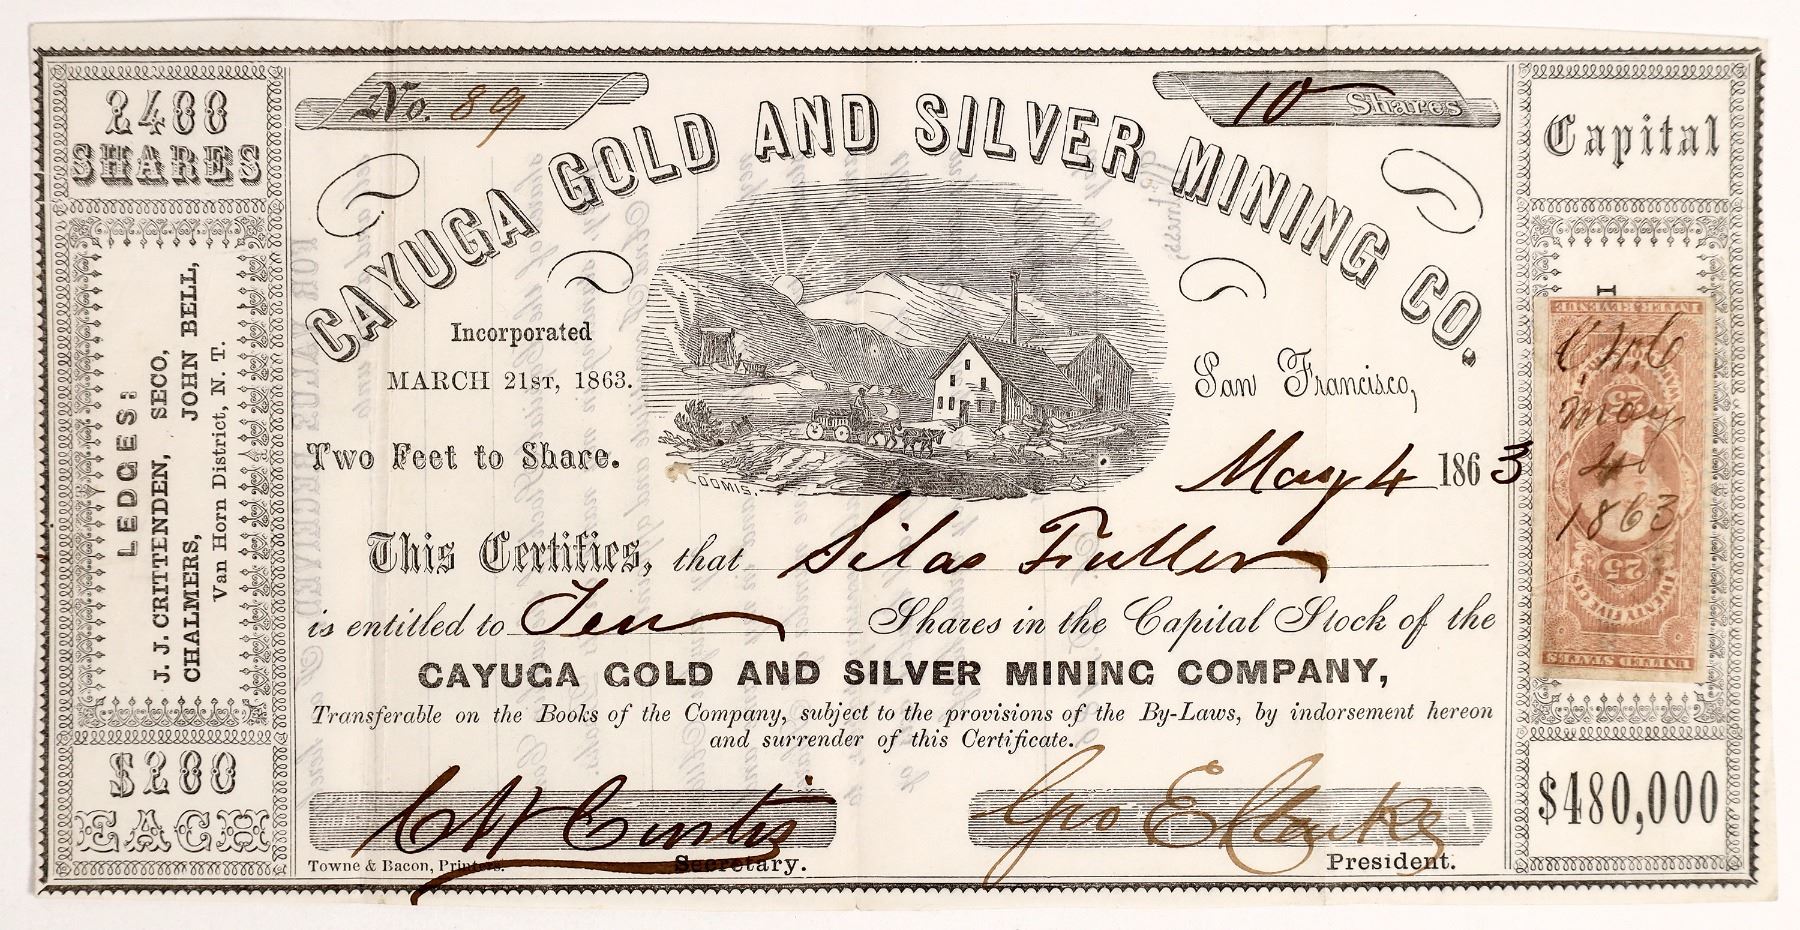 2400 SHARES
LEDGES:
J. J. CRITTENDEN, SECO,
CHALMERS, JOHN BELL,
Van Horn District, N. T.
$200
EACH
No. 89
10 Shares
CAYUGA GOLD AND SILVER MINING CO.
Incorporated
MARCH 21ST, 1863.
Two Feet to Share.
LOOMIS.
San Francisco,
May 4 1863
This Certifies, that Silas Fuller
is entitled to Ten Shares in the Capital Stock of the
CAYUGA GOLD AND SILVER MINING COMPANY,
Transferable on the Books of the Company, subject to the provisions of the By-Laws, by indorsement hereon
and surrender of this Certificate.
C W Curtis
Secretary.
Geo E Clarke
President.
Towne & Bacon, Printers.
Capital
INTER. REVENUE
25
25
TWENTY FIVE CTS
UNITED STATES
May
4
1863
$480,000